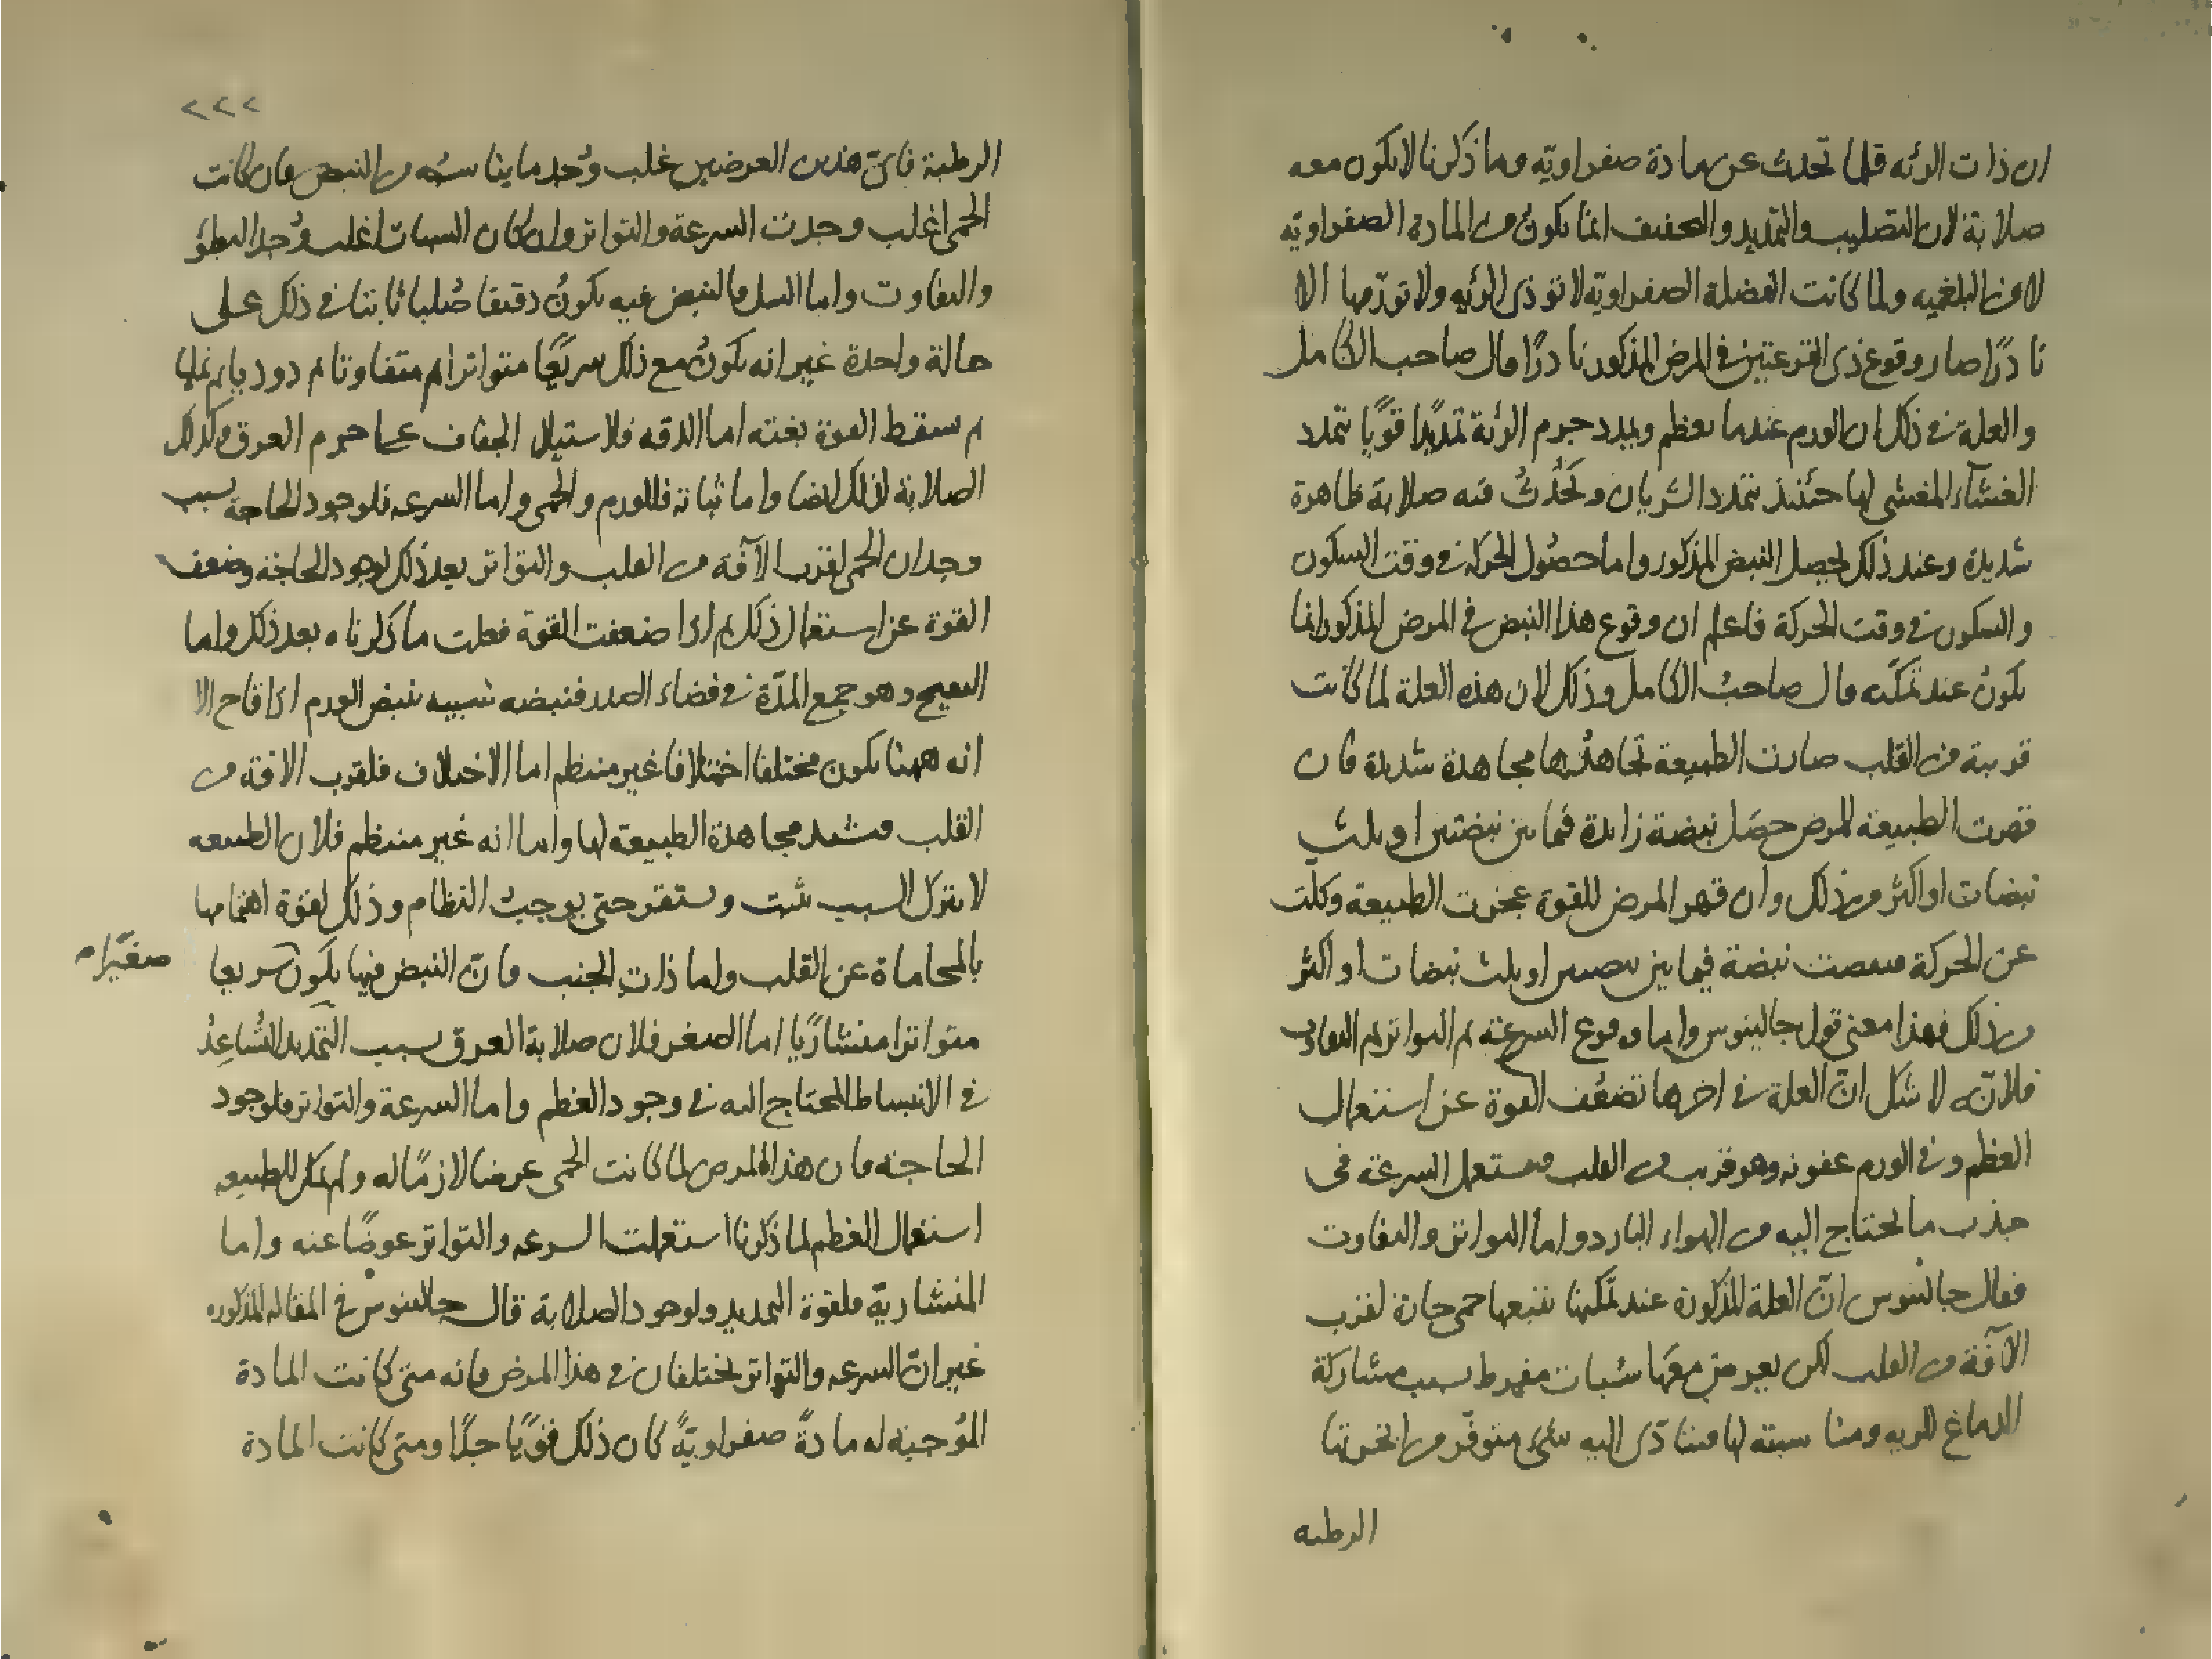 ان ذات الرئه قلما تحدث عن مادة صفراويّه وما ذكرنا لا يكون معه
صلابة لان التصليب والتمديد والتجفيف انما يكون من المادة الصفراويّه
لا من البلغميه ولما كانت الفضلة الصفراويّة لا توذى الرئه ولا تورّمها الا
نادرًا صار وقوع ذى القرعتين فى المرض المذكور نادرًا وقال صاحب الكامل
والعلة فى ذلك ان الورم عندما يعظم ويمدد جرم الرئة تمديدًا قويًا يتمدد
الغشآء المغشى لها حينئذ يتمدد الشريان ويحدُثُ فيه صلابة ظاهرة
شديدة وعند ذلك يحصل النبض المذكور واما حصُول الحركة فى وقت السكون
والسكون فى وقت الحركة فاعلم ان وقوع هذا النبض فى المرض المذكور انما
يكونُ عند تمكّنه قال صاحبُ الكامل وذلك لان هذه العلة لما كانت
قريبة من القلب صارت الطبيعة تجاهدُها مجاهدة شديدة فان
قهرت الطبيعة المرض حصَل نبضة زايدة فيما بين نبضتين او ثلث
نبضات او اكثر من ذلك وان قهر المرض للقوة عجزت الطبيعة وكلّت
عن الحركة فنقصت نبضة فيما بين نبضتين او ثلث نبضات او اكثر
من ذلك فهذا معنى قول جالينوس واما وقوع السرعة ثم التواتر ثم التفاوت
فلانّه لا شك انّ العلة فى اخرها تضعُف القوة عن استعمال
العظم وفى الورم عفونه وهو قريب من القلب فتستعمل السرعة فى
جذب ما يحتاج اليه من الهواء البارد واما التواتر والتفاوت
فقال جالينوس انّ العلة المذكورة عند تمكّنها تتبعها حمى حارة لقرب
الآفة من القلب لكن يعرض معَها سُبات مفرط بسبب مشاركة
الدماغ للريه ومناسبته لها فيتادّى اليه شىء متوفّر من ابخرتها
الرطبه
٢٢٢
الرطبة فاىّ هذين العرضين غلب وُجد ما يناسبُه من النبض فان كانت
الحمى اغلب وجدت السرعة والتواتر وان كان السبات اغلب وُجد البطؤ
والتفاوت واما السل فالنبض فيه يكونُ دقيقا صُلبا ثابتا فى ذلك على
حالة واحدة غير انه يكونُ مع ذلك سريعًا متواترا ثم متفاوتا ثم دوديا ثم نمليا
ثم تسقط القوة بغتة اما الدقه فلاستيلاء الجفاف على جرم العرق وكذلك
الصلابة لذلك ايضا واما ثباته فللورم والحمى واما السرعه فلوجود الحاجة بسبب
وجدان الحمى لقرب الآفة من القلب والتواتر بعد ذلك لوجود الحاجة وضعف
القوة عن استعمال ذلك ثم اذا ضعفت القوة فعلت ما ذكرناه بعد ذلك واما
التقيح وهو جمع المدّة فى فضاء الصدر فنبضه شبيه بنبض الورم اذا قاح الا
انه ههنا يكون مختلفا اختلافا غير منتظم اما الاختلاف فلقرب الافة من
القلب فتشتد مجاهدة الطبيعة لها واما انه غير منتظم فلان الطبيعه
لا تترك السبب يثبت ويستقر حتى يوجبُ النظام وذلك لقوة اهتمامها
بالمحاماة عن القلب واما ذات الجنب فانّ النبض فيها يكون سريعا
صغيرًا
متواترا منشاريًا اما الصغر فلان صلابة العرق بسبب التمديد لا تُساعِدُ
فى الانبساط المحتاج اليه فى وجود العظم واما السرعة والتواتر فلوجود
الحاجة فان هذا المرض لما كانت الحمى عرضا لازمًا له ولم يمكن للطبيعه
استعمال العظم لما ذكرنا استعملت السرعه والتواتر عوضًا عنه واما
المنشارية فلقوة التمديد ولوجود الصلابة قال جالينوس فى المقاله المذكوره
غير انّ السرعه والتواتر يختلفان فى هذا المرض فانه متى كانت المادة
المُوجبة له مادةً صفراويّةً كان ذلك قويًا جدًا ومتى كانت المادة